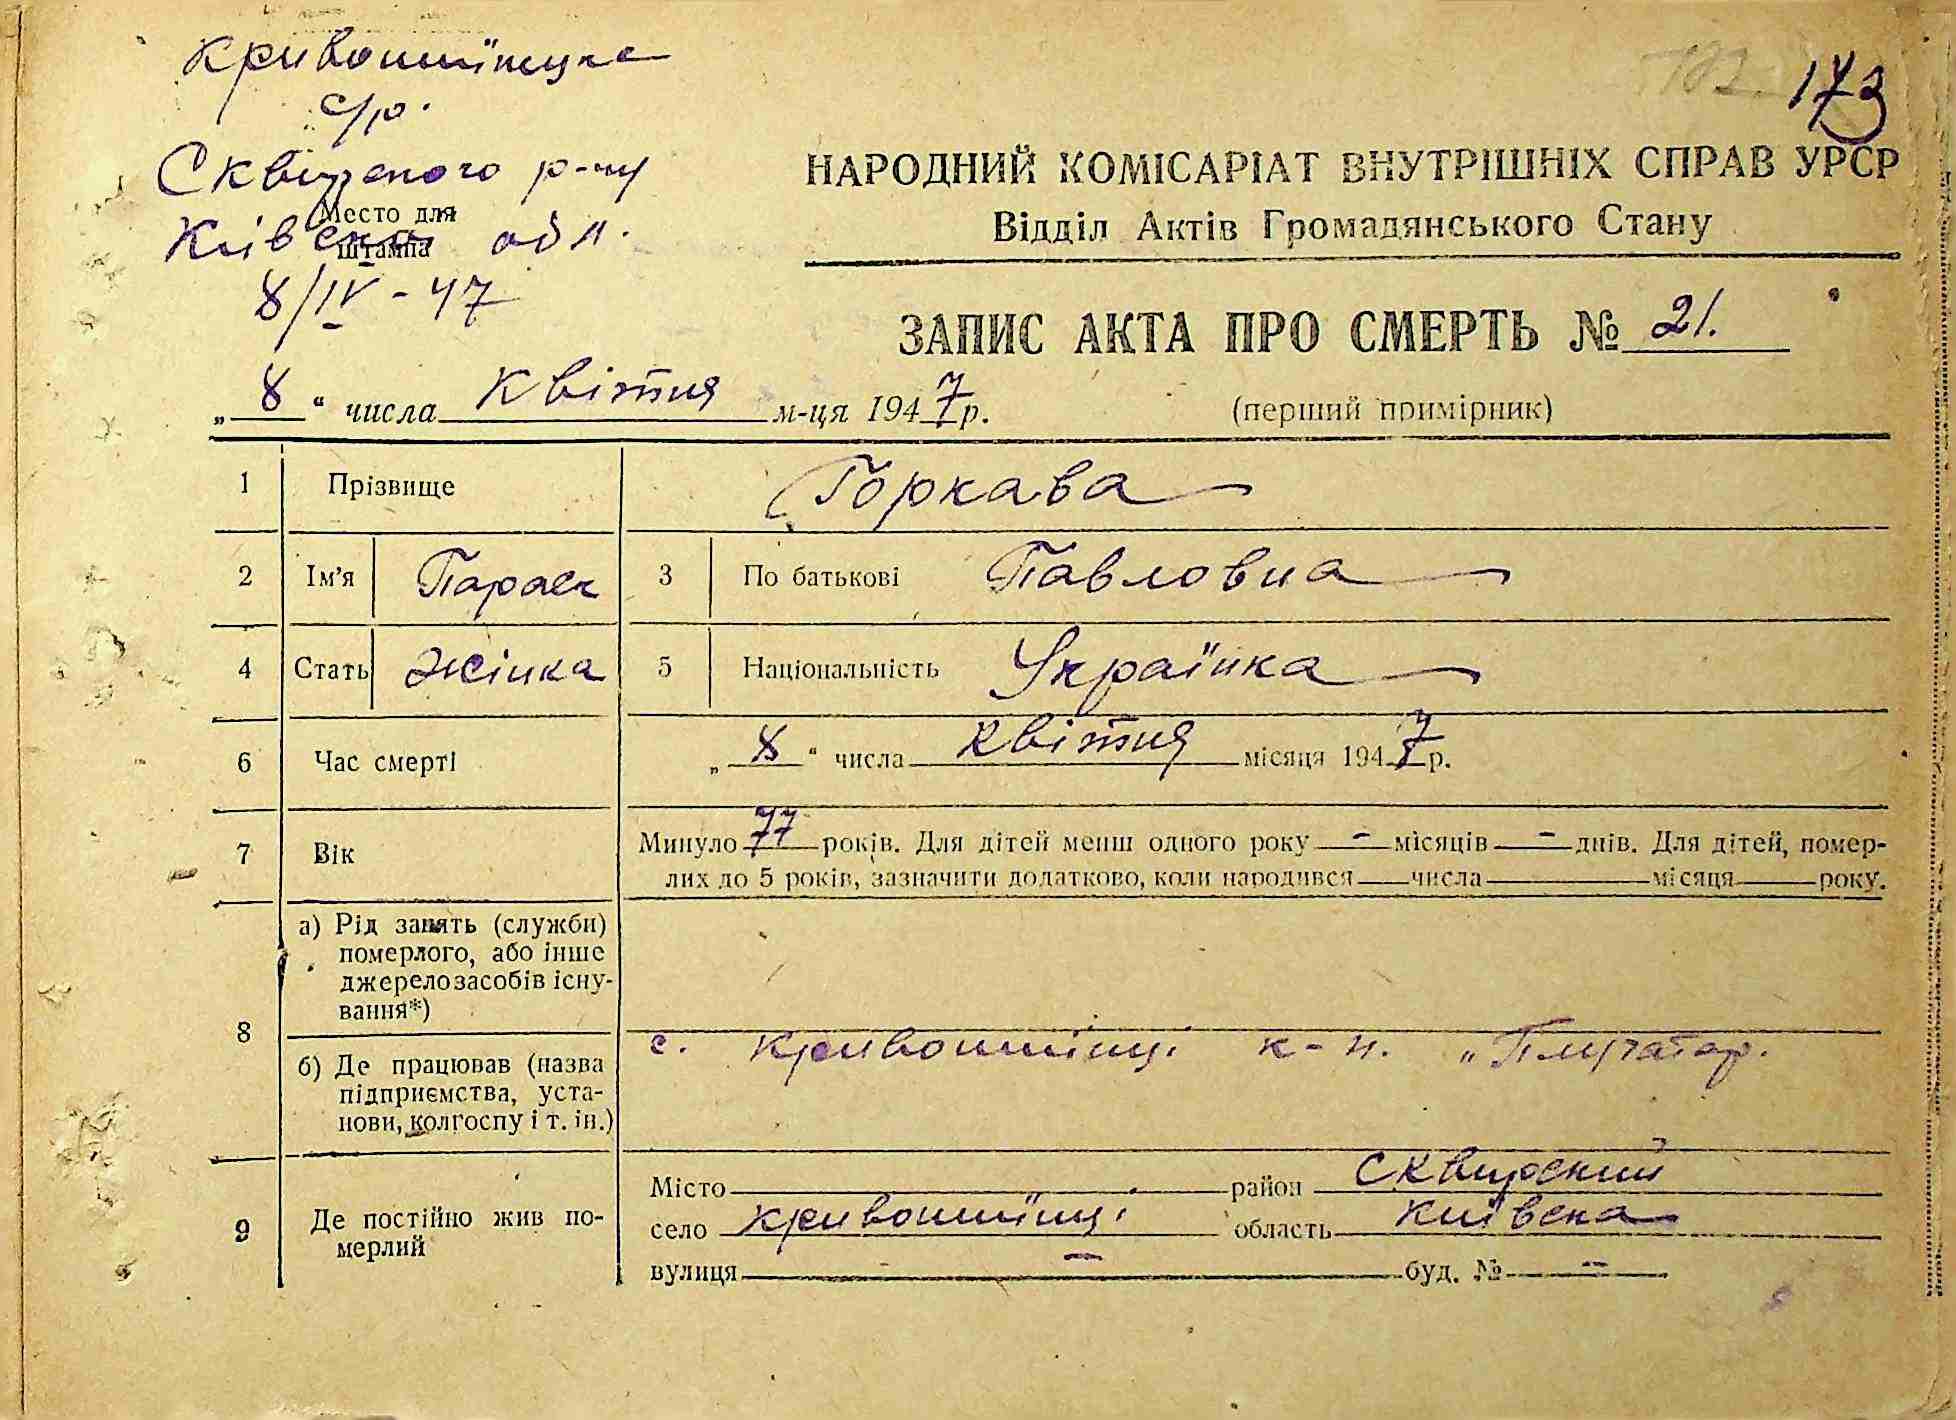 173
Кривошиїнцка
с/р.
Сквирского р-ну
Київска обл.
8/IV - 47
Место для
штампа
НАРОДНИЙ КОМІСАРІАТ ВНУТРІШНІХ СПРАВ УРСР
Відділ Актів Громадянського Стану
ЗАПИС АКТА ПРО СМЕРТЬ № 21.
„ 8 “ числа Квітня м-ця 1947 р.
(перший примірник)
1 Прізвище Горкава
2 Ім’я Параск 3 По батькові Павловна
4 Стать Жінка 5 Національність Українка
6 Час смерті „ 8 “ числа Квітня місяця 1947 р.
7 Вік Минуло 77 років. Для дітей менш одного року - місяців - днів. Для дітей, помер-
лих до 5 років, зазначити додатково, коли народився числа місяця року.
8 а) Рід занять (служби)
померлого, або інше
джерело засобів існу-
вання*)
б) Де працював (назва
підприємства, уста-
нови, колгоспу і т. ін.)
с. Кривошиїнці к-п.
9 Де постійно жив по-
мерлий
Місто район Сквирский
село Кривошиїнці область Київска
вулиця - буд. № -